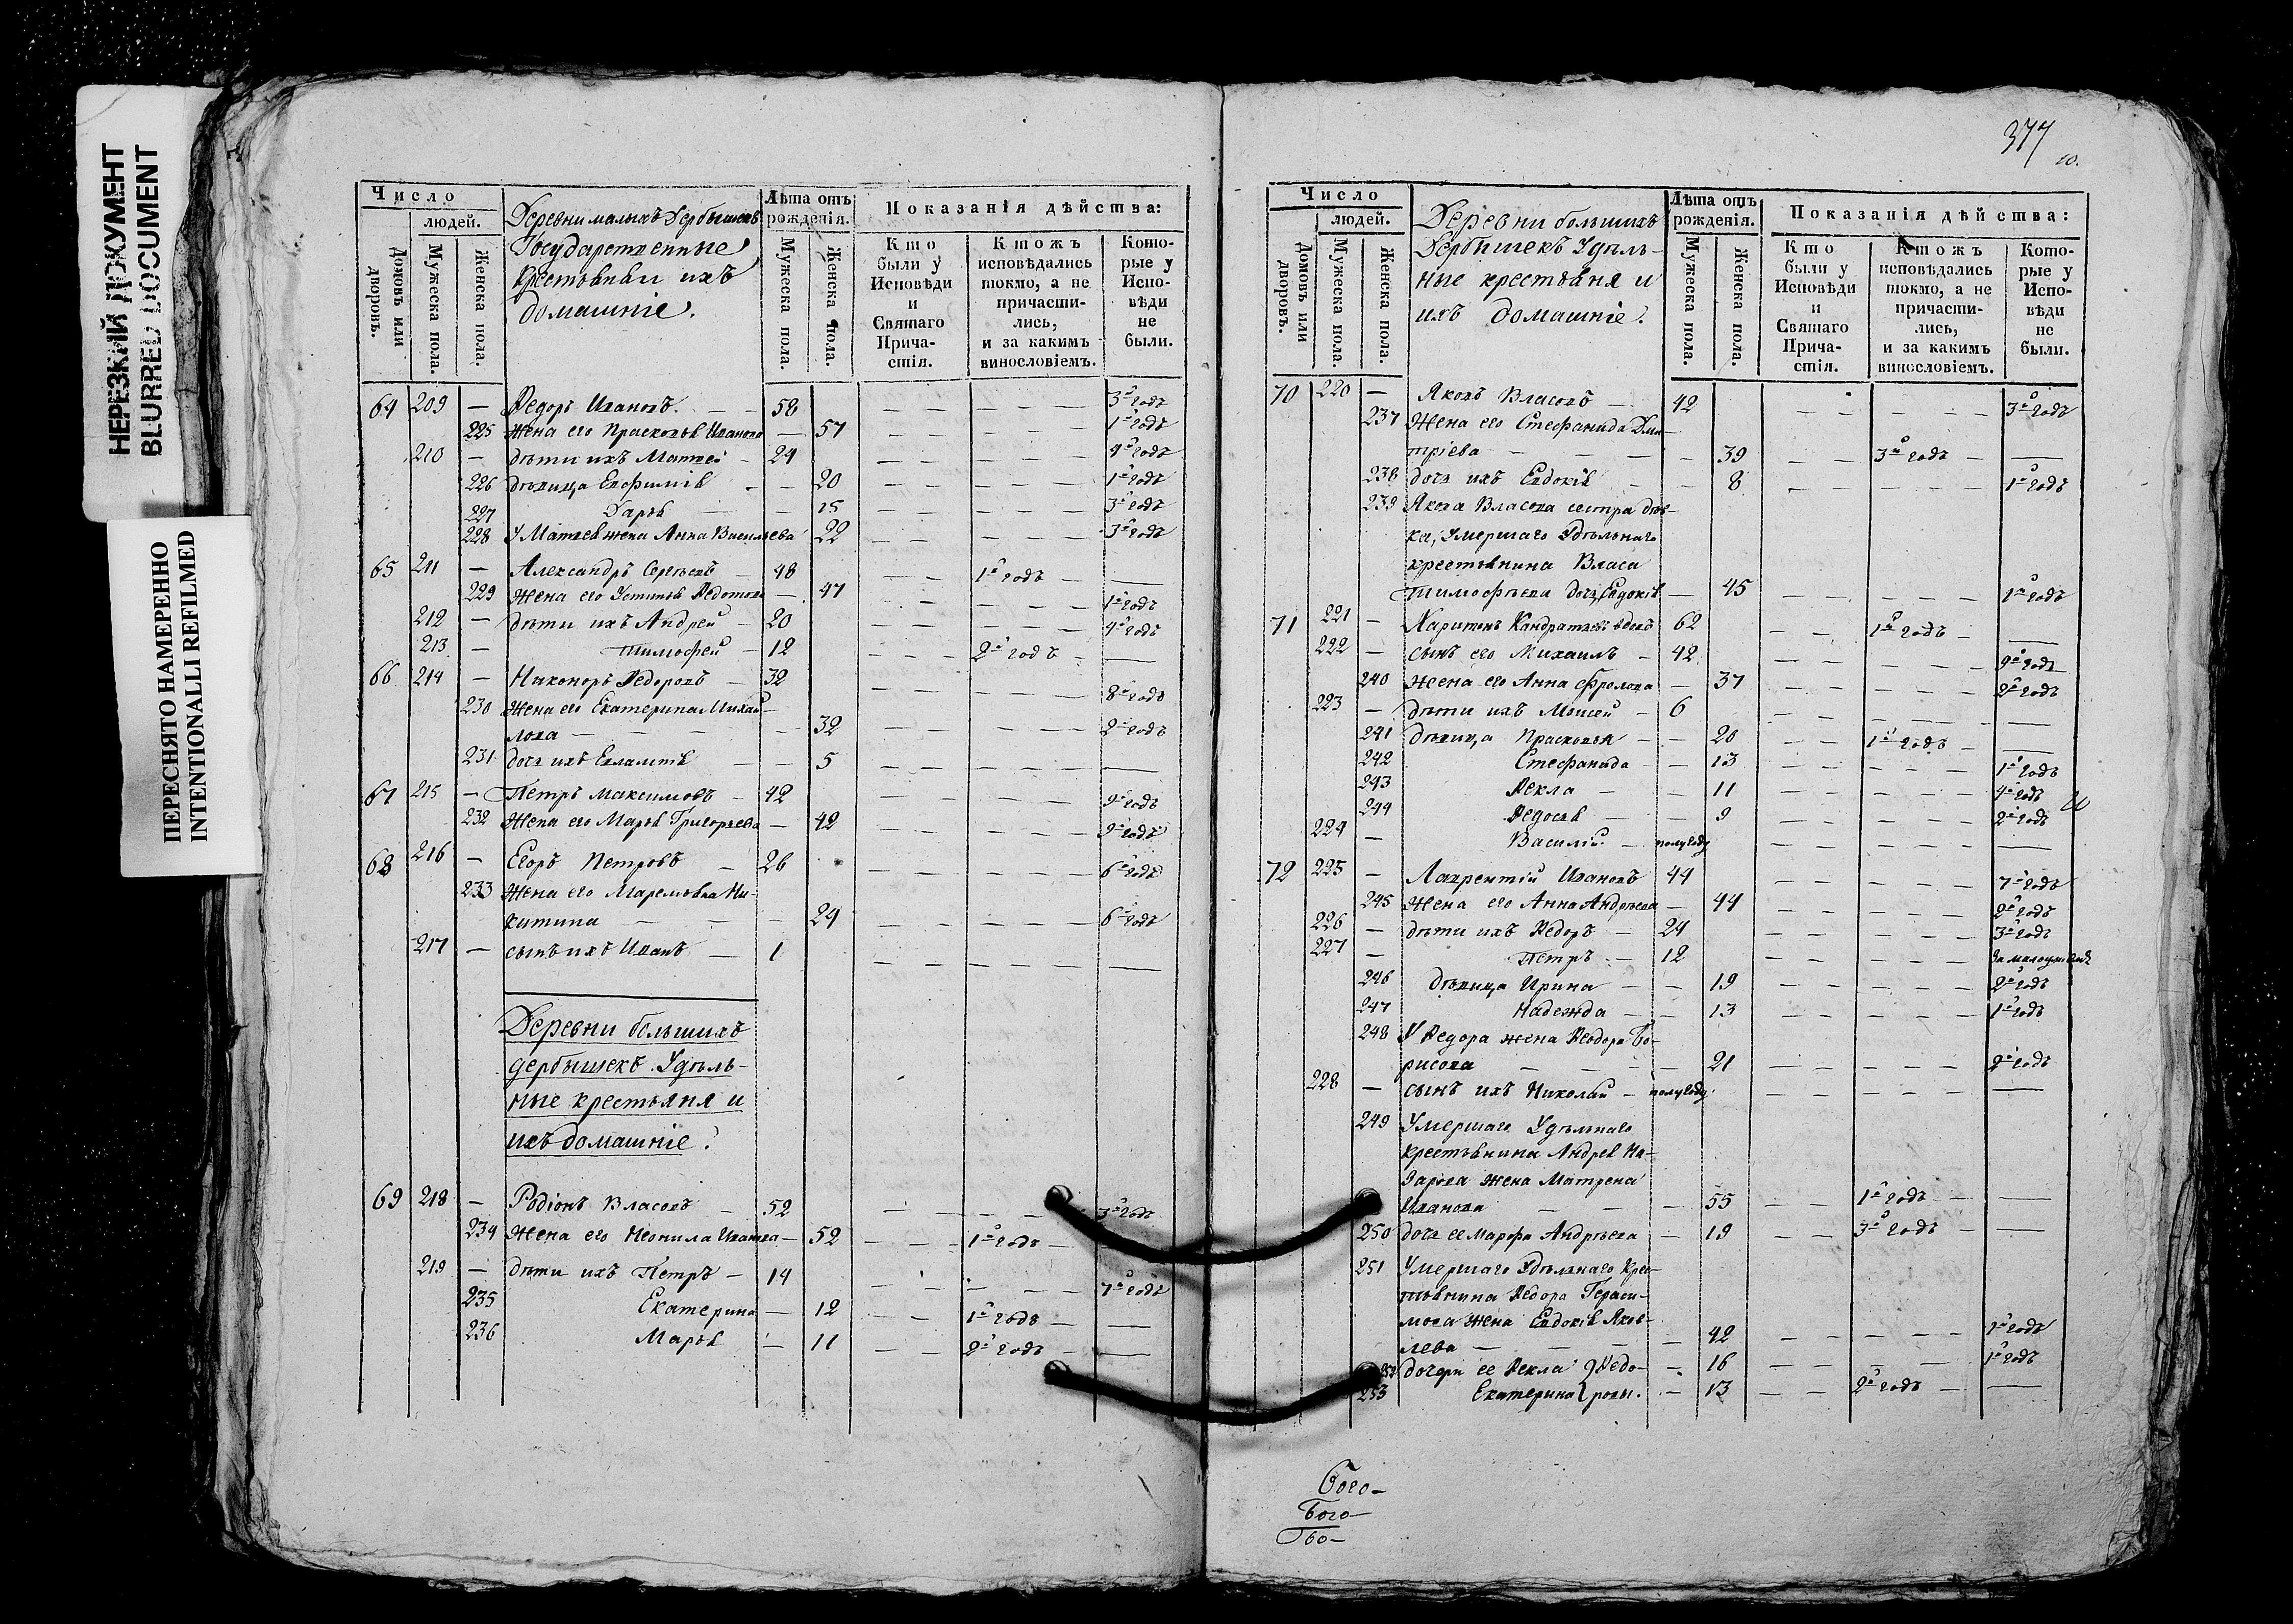 НЕРЕЗКИЙ ДОКУМЕНТ
BLURRED DOCUMENT
ПЕРЕСНЯТО НАМЕРЕННО
INTENTIONALLI REFILMED
Число
людей.
Домовъ или дворовъ.
Мужеска пола.
Женска пола.
Деревни малыхъ Дербышекъ
Государственные
Крестьяньи ихъ
домашніе.
Лѣта отъ рожденія.
Мужеска пола.
Женска пола.
Показанія дѣйства:
Кто были у Исповѣди и Святаго Причастія.
Ктожъ исповѣдались токмо, а не причастились, и за какимъ винословіемъ.
Которые у Исповѣди не были.
64 209 — Ѳедоръ Ивановъ. — — 58 — — — — — 3й годъ
225 Жена его Прасковья Иванова — 57 — — — — — 1й годъ
210 — дѣти ихъ Матвей — 24 — — — — — 4й годъ
226 дѣвица Евфимія — — 20 — — — — — 1й годъ
227 Дарья — — 15 — — — — — 3й годъ
228 У Матвея жена Анна Васильева 22 — — — — — 3й годъ
65 211 — Александръ Сергѣевъ — 48 — — 1й годъ — —
229 Жена его Устинья Ѳедотова — 47 — — — — — 1й годъ
212 — дѣти ихъ Андрей — 20 — — — — — 4й годъ
213 — Тимофей — 12 — — 2й годъ — —
66 214 — Никоноръ Ѳедоровъ — 32 — — — — — 8й годъ
230 Жена его Екатерина Михай-
лова — — — — 32 — — — — — 2й годъ
231 дочь ихъ Евлампія — — 5 — — — — — —
67 215 — Петръ Максимовъ — 42 — — — — — 9й годъ
232 Жена его Марья Григорьева — 42 — — — — — 9й годъ
68 216 — Егоръ Петровъ — 26 — — — — — 6й годъ
233 Жена его Маремьяна Ни-
китина — — — 24 — — — — — 6й годъ
217 — сынъ ихъ Иванъ — 1 — — — — — —
Деревни большихъ
дербышекъ Удѣль-
ные крестьяня и
ихъ домашніе.
69 218 — Родіонъ Власовъ — 52 — — — — — 3й годъ
234 Жена его Неонила Иванова — 52 — — 1й годъ —
219 — дѣти ихъ Петръ — 14 — — — — — 7й годъ
235 Екатерина — 12 — — 1й годъ — —
236 Марья — 11 — — 2й годъ — —
377
Число
людей.
Домовъ или дворовъ.
Мужеска пола.
Женска пола.
Деревни большихъ
Дербишекъ Удѣль-
ные крестьяня и
ихъ домашніе.
Лѣта отъ рожденія.
Мужеска пола.
Женска пола.
Показанія дѣйства:
Кто были у Исповѣди и Святаго Причастія.
Ктожъ исповѣдались токмо, а не причастились, и за какимъ винословіемъ.
Которые у Исповѣди не были.
70 220 — Яковъ Власовъ — 42 — — — — — 3й годъ
237 Жена его Стефанида Дми-
тріева — — — — 39 — — 3й годъ — —
238 дочь ихъ Евдокія — — 8 — — — — — 1й годъ
239 Якова Власова сестра дѣв-
ка, Умершаго Удѣльнаго
крестьянина Власа
Тимофѣева дочь Евдокія — 45 — — — — — 1й годъ
71 221 — Харитонъ Кандратьевъ вдовъ 62 — — 1й годъ — —
222 — сынъ его Михаилъ — 42 — — — — — 9й годъ
240 Жена его Анна Фролова — 37 — — — — — 2й годъ
223 — дѣти ихъ Моисей — 6 — — — — — —
241 дѣвица Прасковья — — 20 — — 1й годъ — —
242 Стефанида — — 13 — — — — — 1й годъ
243 Ѳекла — — 11 — — — — — 4й годъ
244 Ѳедосья — — 9 — — — — — 2й годъ
224 — Василій — полугоду — — — — — —
72 225 — Лаврентій Ивановъ 44 — — — — — 7й годъ
245 Жена его Анна Андрѣева — 44 — — — — — 2й годъ
226 — дѣти ихъ Ѳедоръ — 24 — — — — — 3й годъ
227 — Петръ — 12 — — — — —
246 дѣвица Ирина — — 19 — — — — — 2й годъ
247 Надежда — — 13 — — — — — 1й годъ
248 У Ѳедора жена Ѳеодора Бо-
рисова — — — — 21 — — — — — 2й годъ
228 — сынъ ихъ Николай — полугоду — — — — — —
249 Умершаго Удѣльнаго
крестьянина Андрея На-
зарова жена Матрена
Иванова — — — 55 — — 1й годъ — —
250 дочь ее Марфа Андрѣева — 19 — — 3й годъ — —
251 Умершаго Удѣльнаго Крес-
тьянина Ѳедора Гераси-
мова жена Евдокія Яков-
лева — — — — 42 — — — — — 1й годъ
252 дочери ее Ѳекла } Ѳедо- — 16 — — — — 1й годъ
253 Екатерина } ровы. — 13 — — 2й годъ — —
Бого-
Бого-
Бо-